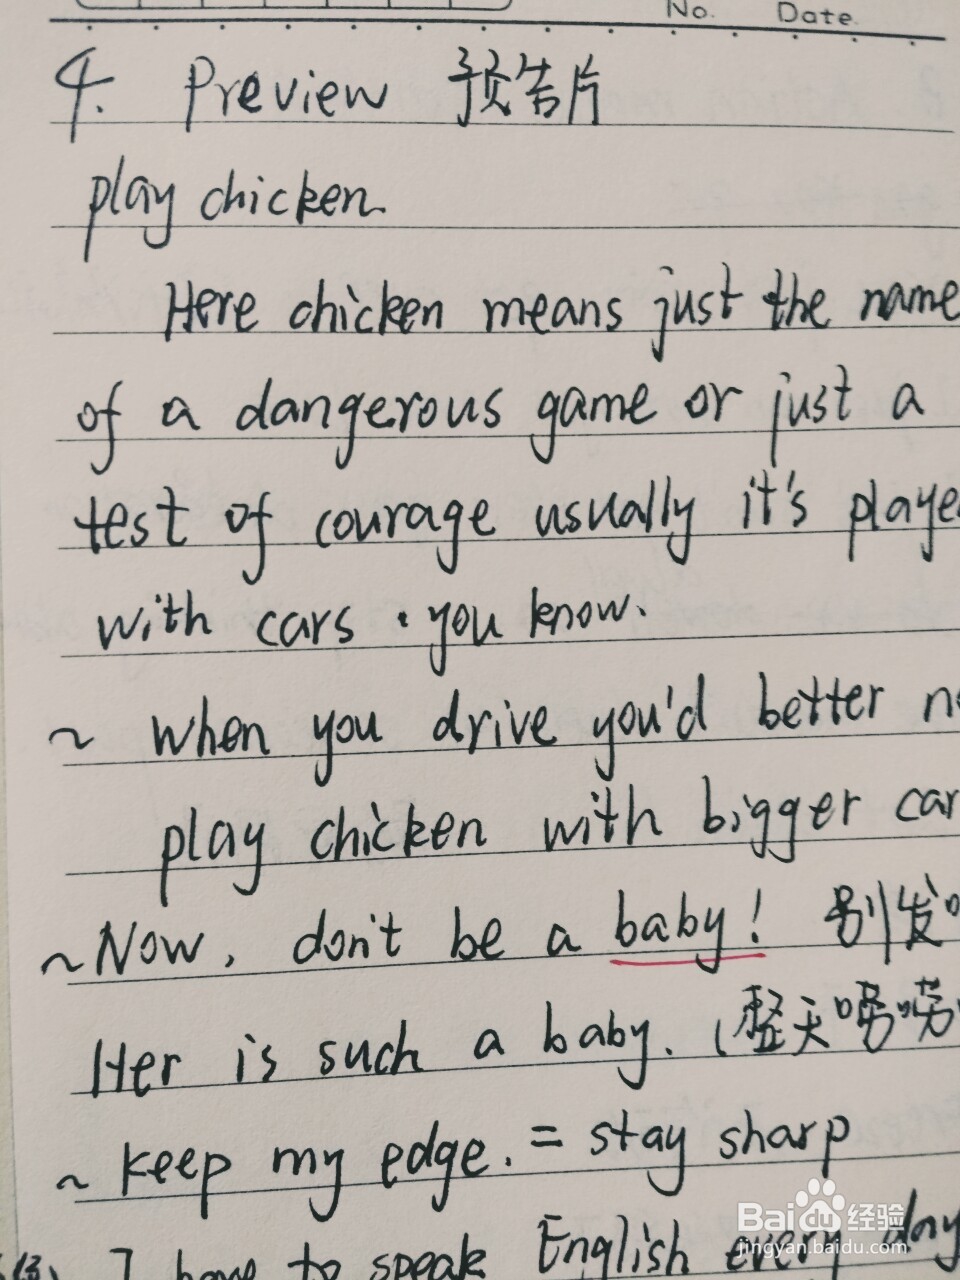 No. Date.
4. Preview 预告片
play chicken
Here chicken means just the name
of a dangerous game or just a
test of courage usually it's playe
with cars. you know.
~ when you drive you'd better n
play chicken with bigger car
~ Now, don't be a baby! 别发
Her is such a baby. (整天唠唠
~ keep my edge. = stay sharp
I have to speak English every day
Baidu经验
jingyan.baidu.com